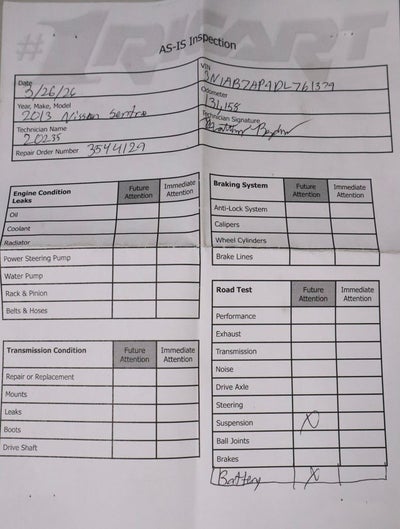 #1 RIFAART
AS-IS Inspection
Date
3/26/26
VIN
3N1AB7AP4DL761379
Year, Make, Model
2013 Nissan Sentra
Odometer
134,158
Technician Name
20235
Technician Signature
Repair Order Number 3544129
Engine Condition Future Attention Immediate Attention
Leaks
Oil
Coolant
Radiator
Power Steering Pump
Water Pump
Rack & Pinion
Belts & Hoses
Transmission Condition Future Attention Immediate Attention
Repair or Replacement
Mounts
Leaks
Boots
Drive Shaft
Braking System Future Attention Immediate Attention
Anti-Lock System
Calipers
Wheel Cylinders
Brake Lines
Road Test Future Attention Immediate Attention
Performance
Exhaust
Transmission
Noise
Drive Axle
Steering
Suspension X
Ball Joints
Brakes
Battery X